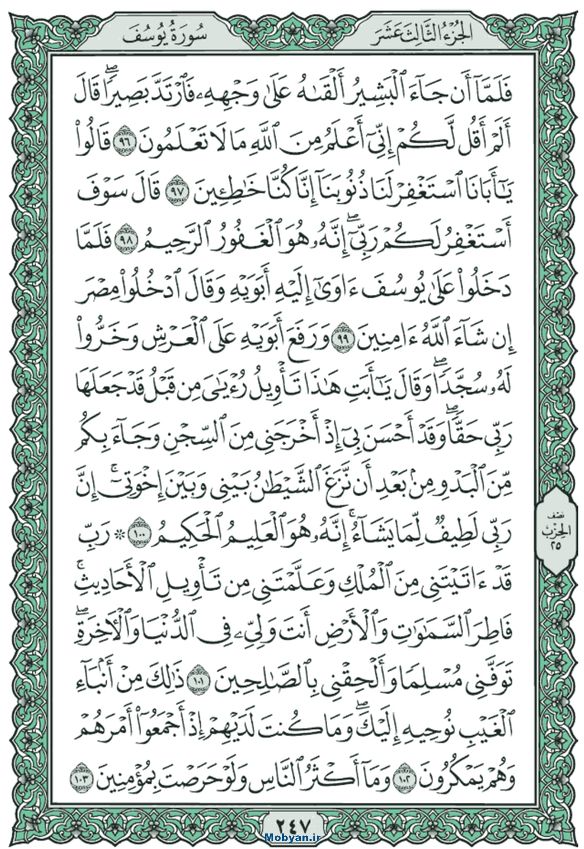 الجُزْءُ الثَّالِثَ عَشَرَ
سُورَةُ يُوسُفَ
فَلَمَّآ أَن جَآءَ ٱلْبَشِيرُ أَلْقَىٰهُ عَلَىٰ وَجْهِهِۦ فَٱرْتَدَّ بَصِيرًاۖ قَالَ
أَلَمْ أَقُل لَّكُمْ إِنِّىٓ أَعْلَمُ مِنَ ٱللَّهِ مَا لَا تَعْلَمُونَ ٩٦ قَالُوا۟
يَـٰٓأَبَانَا ٱسْتَغْفِرْ لَنَا ذُنُوبَنَآ إِنَّا كُنَّا خَـٰطِـِٔينَ ٩٧ قَالَ سَوْفَ
أَسْتَغْفِرُ لَكُمْ رَبِّىٓۖ إِنَّهُۥ هُوَ ٱلْغَفُورُ ٱلرَّحِيمُ ٩٨ فَلَمَّا
دَخَلُوا۟ عَلَىٰ يُوسُفَ ءَاوَىٰٓ إِلَيْهِ أَبَوَيْهِ وَقَالَ ٱدْخُلُوا۟ مِصْرَ
إِن شَآءَ ٱللَّهُ ءَامِنِينَ ٩٩ وَرَفَعَ أَبَوَيْهِ عَلَى ٱلْعَرْشِ وَخَرُّوا۟
لَهُۥ سُجَّدًاۖ وَقَالَ يَـٰٓأَبَتِ هَـٰذَا تَأْوِيلُ رُءْيَـٰىَ مِن قَبْلُ قَدْ جَعَلَهَا
رَبِّى حَقًّاۖ وَقَدْ أَحْسَنَ بِىٓ إِذْ أَخْرَجَنِى مِنَ ٱلسِّجْنِ وَجَآءَ بِكُم
مِّنَ ٱلْبَدْوِ مِنۢ بَعْدِ أَن نَّزَغَ ٱلشَّيْطَـٰنُ بَيْنِى وَبَيْنَ إِخْوَتِىٓۚ إِنَّ
رَبِّى لَطِيفٌ لِّمَا يَشَآءُۚ إِنَّهُۥ هُوَ ٱلْعَلِيمُ ٱلْحَكِيمُ ١٠٠ * رَبِّ
قَدْ ءَاتَيْتَنِى مِنَ ٱلْمُلْكِ وَعَلَّمْتَنِى مِن تَأْوِيلِ ٱلْأَحَادِيثِۚ
فَاطِرَ ٱلسَّمَـٰوَٰتِ وَٱلْأَرْضِ أَنتَ وَلِىِّۦ فِى ٱلدُّنْيَا وَٱلْـَٔاخِرَةِۖ
تَوَفَّنِى مُسْلِمًا وَأَلْحِقْنِى بِٱلصَّـٰلِحِينَ ١٠١ ذَٰلِكَ مِنْ أَنۢبَآءِ
ٱلْغَيْبِ نُوحِيهِ إِلَيْكَۖ وَمَا كُنتَ لَدَيْهِمْ إِذْ أَجْمَعُوٓا۟ أَمْرَهُمْ
وَهُمْ يَمْكُرُونَ ١٠٢ وَمَآ أَكْثَرُ ٱلنَّاسِ وَلَوْ حَرَصْتَ بِمُؤْمِنِينَ ١٠٣
نصف
الحزب
٢٥
٢٤٧
Mobyan.ir